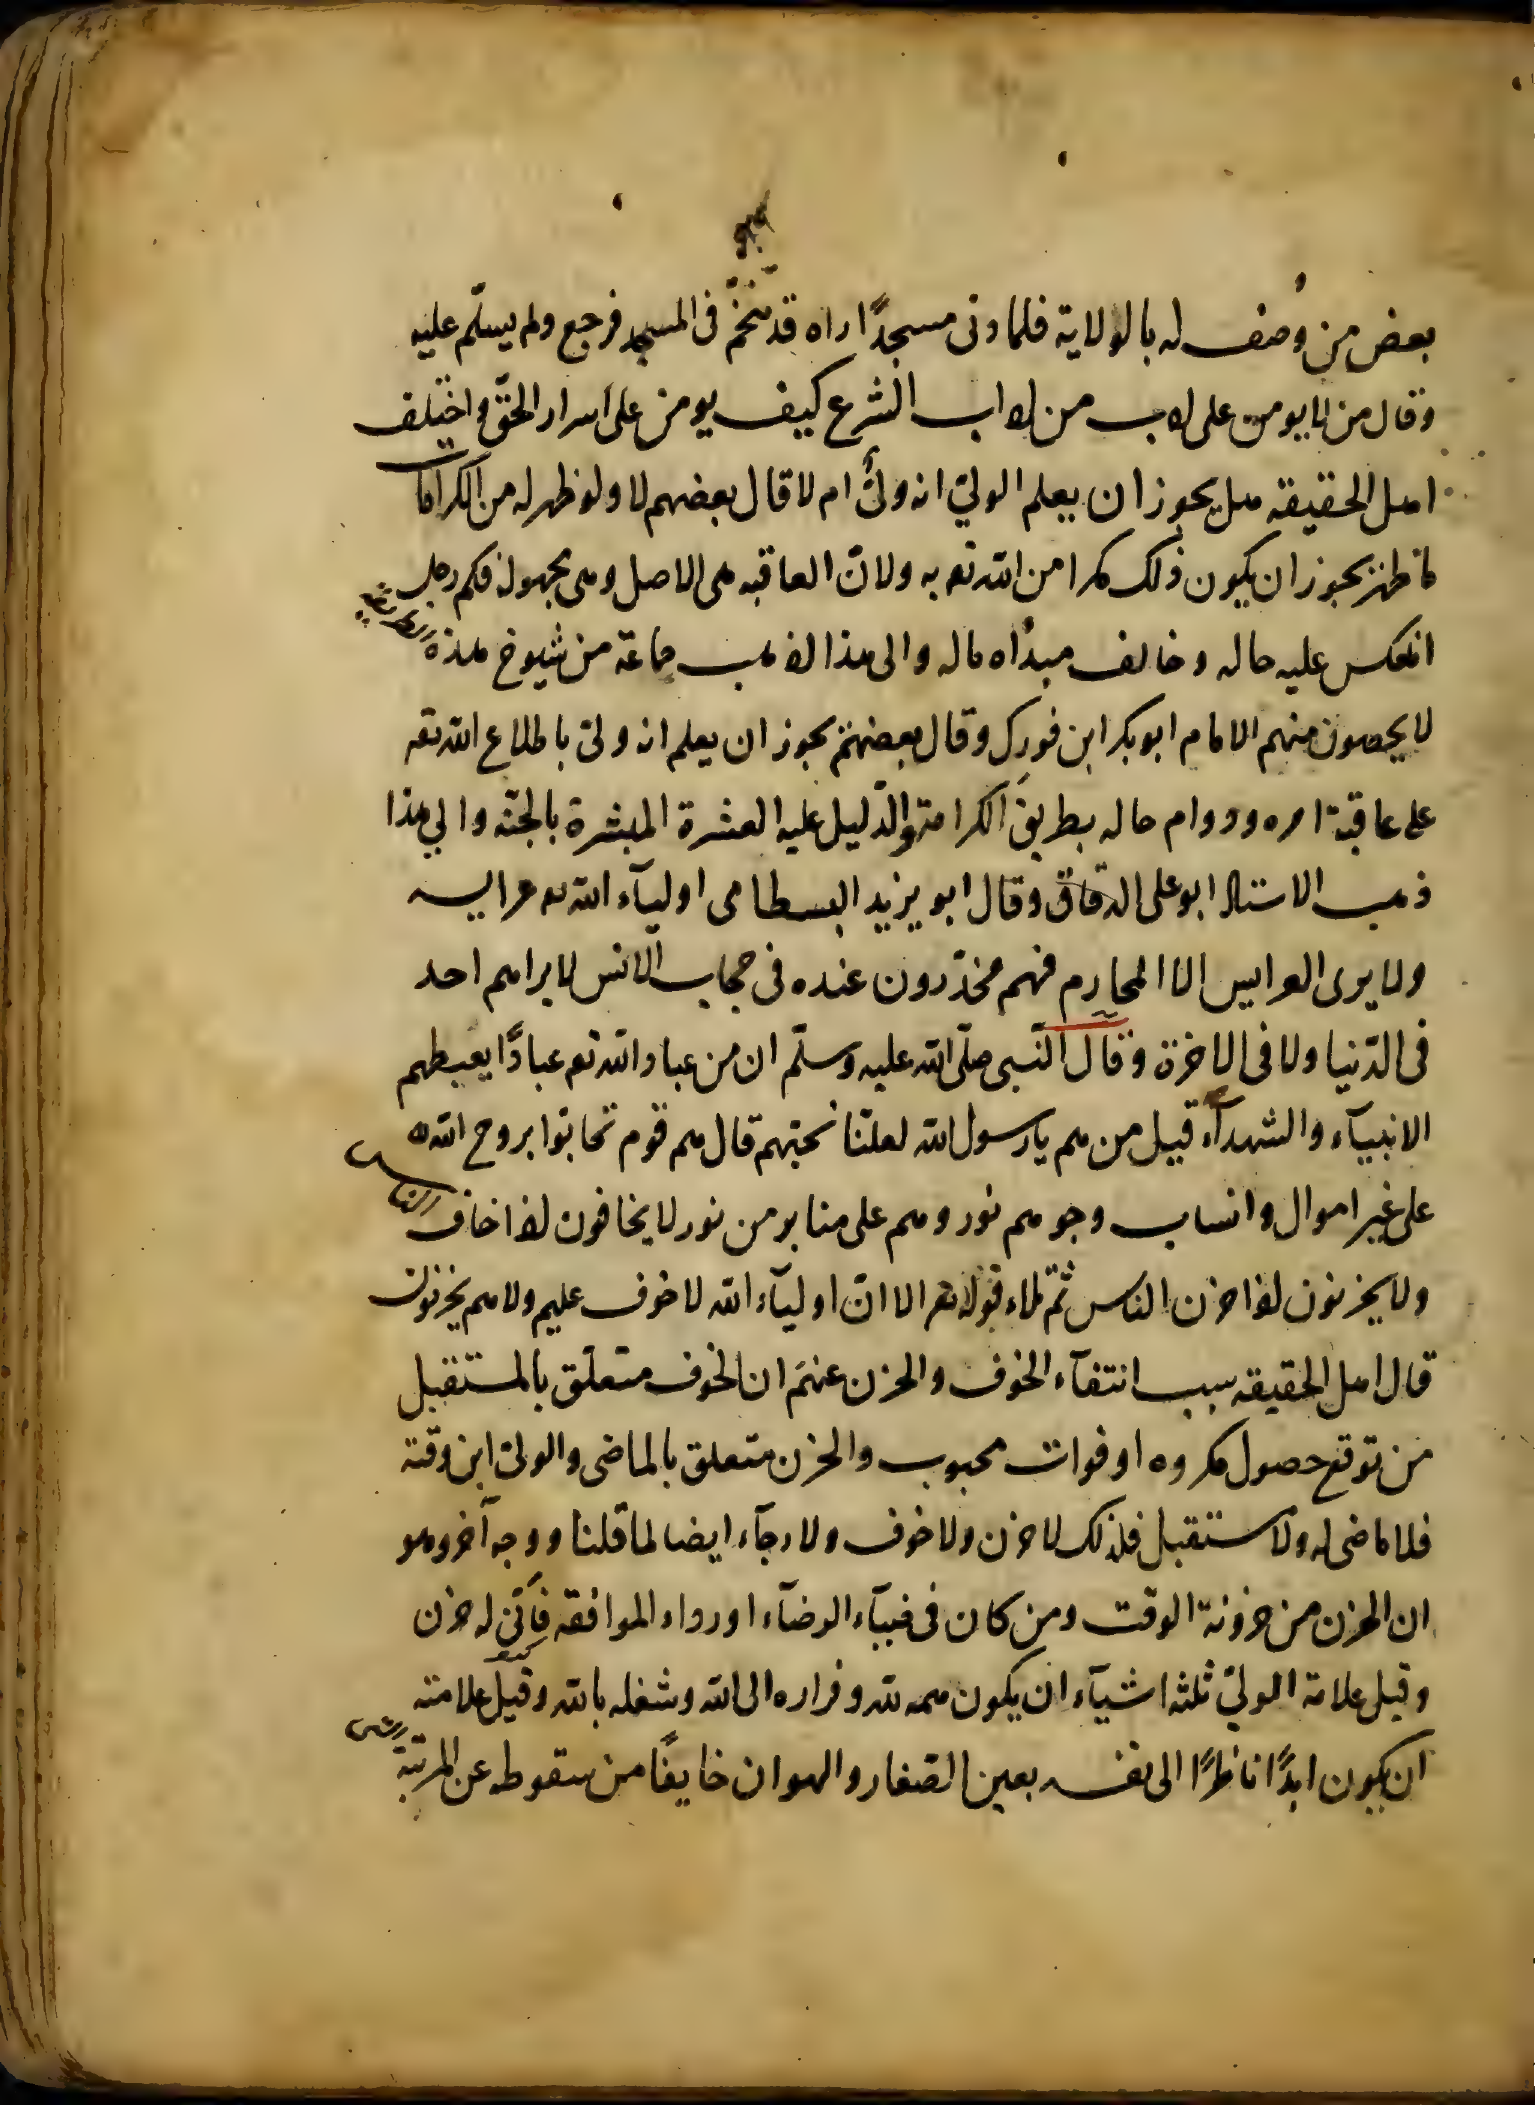 بعض من وُصف له بالولاية فلما دنى مسجدًا راه قد تنخّم فى المسجد فرجع ولم يسلّم عليه
وقال من لا يومن على ادب من اداب الشرع كيف يومن على اسرار الحقّ واختلف
اهل الحقيقة هل يجوز ان يعلم الوليّ انه ولىٌّ ام لا قال بعضهم لا ولو ظهر له من الكرامات
ما ظهر يجوز ان يكون ذلك مكرا من الله تع به ولانّ العاقبه هى الاصل وهى مجهولة فكم رجل
انعكس عليه حاله وخالف مبداه ماله والى هذا ذهب جماعة من شيوخ هذه الطريقة
لا يحصون منهم الامام ابو بكر ابن فورك وقال بعضهم يجوز ان يعلم انه ولىّ باطلاع الله تعه
على عاقبة امره ودوام حاله بطريق الكرامة والدّليل عليه العشرة المبشرة بالجنّه والي هذا
ذهب الاستاد ابو على الدقاق وقال ابو يزيد البسطامى اوليآء الله تع عرايسه
ولا يرى العرايس الا المحارم فهم مخدّرون عنده فى حجاب الانس لا يراهم احد
فى الدّنيا ولا فى الاخرة وقال النّبى صلّى الله عليه وسلّم ان من عباد الله تع عبادًا يغبطهم
الانبيآء والشهدآء قيل من هم يا رسول الله لعلّنا نحبّهم قال هم قوم تحابّوا بروح الله
على غير اموال وانساب وجوههم نور وهم على منابر من نور لا يخافون اذا خاف الناس
ولا يحزنون اذا حزن الناس ثمّ تلاء قوله تع الا انّ اوليآء الله لا خوف عليهم ولا هم يحزنون
قال اهل الحقيقه سبب انتفآء الخوف والحزن عنهم ان الخوف متعلّق بالمستقبل
من توقع حصول مكروه او فوات محبوب والحزن متعلق بالماضى والولىّ ابن وقته
فلا ماضى له ولا مستقبل فلذلك لا حزن ولا خوف ولا رجآء ايضا لما قلنا ووجه آخر وهو
ان الحزن من حزونة الوقت ومن كان فى ضيآء الرضآء او رداء الموافقه فاَنّى له حزن
وقيل علامة الوليّ ثلثه اشيآء ان يكون همه لله وفراره الى الله وشغله بالله وقيل علامته
ان يكون ابدًا ناظرًا الى نفسه بعين الصّغار والهوان خايفًا من سقوطه عن المرتبة